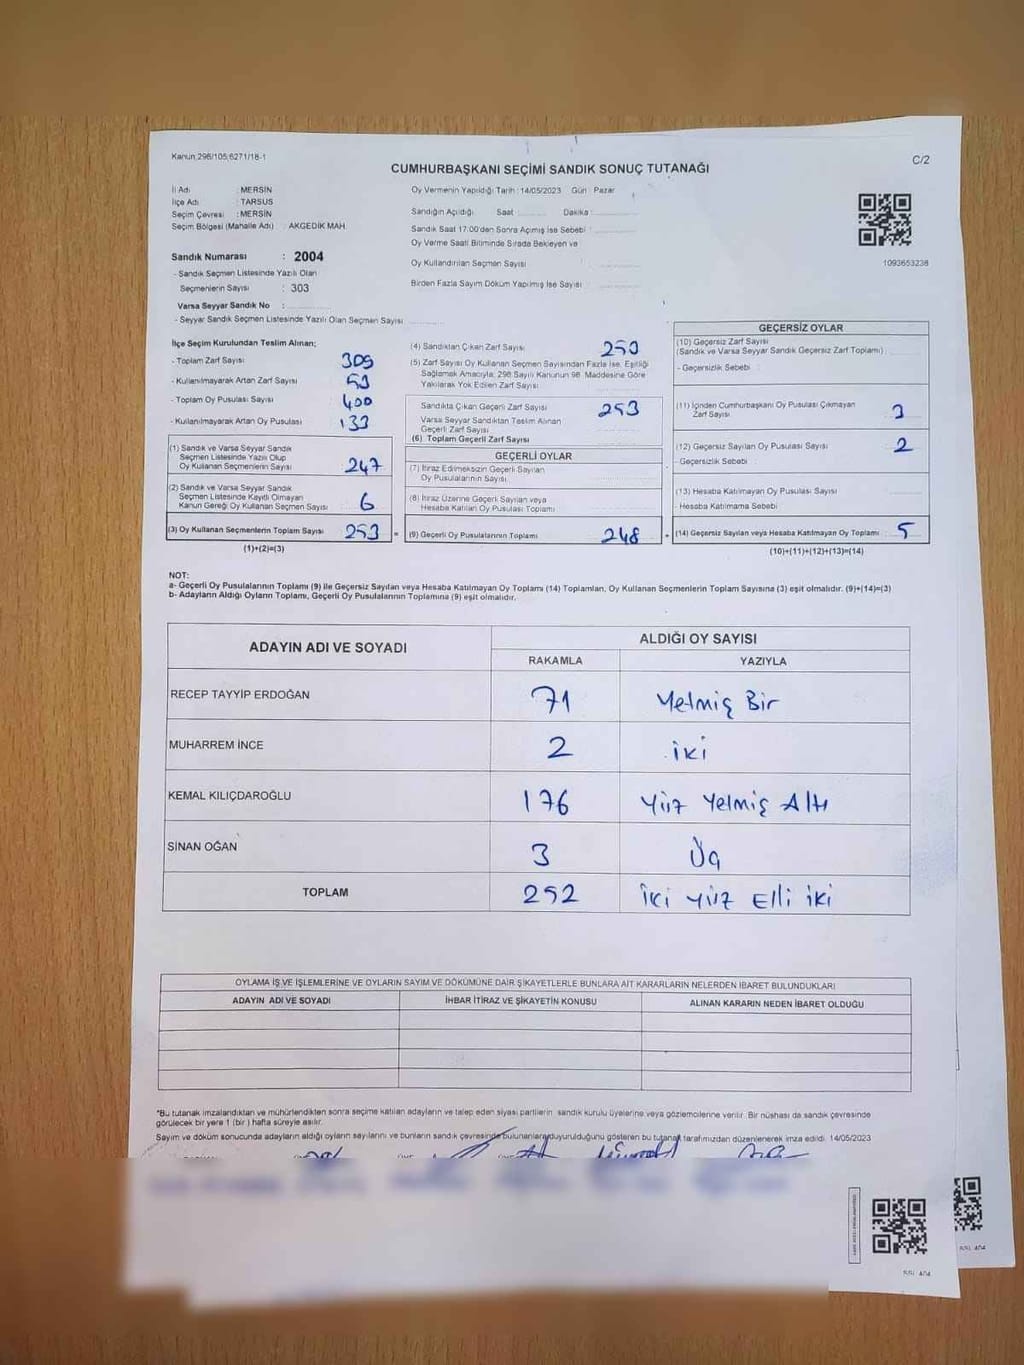 Kanun:298/105;6271/18-1
CUMHURBAŞKANI SEÇİMİ SANDIK SONUÇ TUTANAĞI
C/2
İl Adı : MERSİN
İlçe Adı : TARSUS
Seçim Çevresi : MERSİN
Seçim Bölgesi (Mahalle Adı) : AKGEDİK MAH.
Sandık Numarası : 2004
- Sandık Seçmen Listesinde Yazılı Olan
Seçmenlerin Sayısı : 303
Varsa Seyyar Sandık No :
- Seyyar Sandık Seçmen Listesinde Yazılı Olan Seçmen Sayısı
Oy Vermenin Yapıldığı Tarih :14/05/2023 Gün : Pazar
Sandığın Açıldığı Saat : Dakika :
Sandık Saat 17.00'den Sonra Açılmış İse Sebebi :
Oy Verme Saati Bitiminde Sırada Bekleyen ve
Oy Kullandırılan Seçmen Sayısı :
Birden Fazla Sayım Döküm Yapılmış İse Sayısı :
1093653238
İlçe Seçim Kurulundan Teslim Alınan;
- Toplam Zarf Sayısı 309
- Kullanılmayarak Artan Zarf Sayısı
- Toplam Oy Pusulası Sayısı 400
- Kullanılmayarak Artan Oy Pusulası 133
(1) Sandık ve Varsa Seyyar Sandık
Seçmen Listesinde Yazılı Olup
Oy Kullanan Seçmenlerin Sayısı 247
(2) Sandık ve Varsa Seyyar Sandık
Seçmen Listesinde Kayıtlı Olmayan
Kanun Gereği Oy Kullanan Seçmen Sayısı 6
(3) Oy Kullanan Seçmenlerin Toplam Sayısı 253 =
(1)+(2)=(3)
(4) Sandıktan Çıkan Zarf Sayısı 253
(5) Zarf Sayısı Oy Kullanan Seçmen Sayısından Fazla İse, Eşitliği
Sağlamak Amacıyla; 298 Sayılı Kanunun 98. Maddesine Göre
Yakılarak Yok Edilen Zarf Sayısı
Sandıkta Çıkan Geçerli Zarf Sayısı 253
Varsa Seyyar Sandıktan Teslim Alınan
Geçerli Zarf Sayısı
(6) Toplam Geçerli Zarf Sayısı
GEÇERLİ OYLAR
(7) İtiraz Edilmeksizin Geçerli Sayılan
Oy Pusulalarının Sayısı
(8) İtiraz Üzerine Geçerli Sayılan veya
Hesaba Katılan Oy Pusulası Toplamı
(9) Geçerli Oy Pusulalarının Toplamı 248 +
GEÇERSİZ OYLAR
(10) Geçersiz Zarf Sayısı
(Sandık ve Varsa Seyyar Sandık Geçersiz Zarf Toplamı)
- Geçersizlik Sebebi :
(11) İçinden Cumhurbaşkanı Oy Pusulası Çıkmayan
Zarf Sayısı 3
(12) Geçersiz Sayılan Oy Pusulası Sayısı 2
- Geçersizlik Sebebi :
(13) Hesaba Katılmayan Oy Pusulası Sayısı
- Hesaba Katılmama Sebebi :
(14) Geçersiz Sayılan veya Hesaba Katılmayan Oy Toplamı 5
(10)+(11)+(12)+(13)=(14)
NOT:
a- Geçerli Oy Pusulalarının Toplamı (9) ile Geçersiz Sayılan veya Hesaba Katılmayan Oy Toplamı (14) Toplamları, Oy Kullanan Seçmenlerin Toplam Sayısına (3) eşit olmalıdır. (9)+(14)=(3)
b- Adayların Aldığı Oyların Toplamı, Geçerli Oy Pusulalarının Toplamına (9) eşit olmalıdır.
ADAYIN ADI VE SOYADI
ALDIĞI OY SAYISI
RAKAMLA YAZIYLA
RECEP TAYYİP ERDOĞAN 71 Yetmiş Bir
MUHARREM İNCE 2 iki
KEMAL KILIÇDAROĞLU 176 Yüz Yetmiş Altı
SİNAN OĞAN 3 Üç
TOPLAM 252 İki Yüz Elli iki
OYLAMA İŞ VE İŞLEMLERİNE VE OYLARIN SAYIM VE DÖKÜMÜNE DAİR ŞİKAYETLERLE BUNLARA AİT KARARLARIN NELERDEN İBARET BULUNDUKLARI
ADAYIN ADI VE SOYADI İHBAR İTİRAZ VE ŞİKAYETİN KONUSU ALINAN KARARIN NEDEN İBARET OLDUĞU
*Bu tutanak imzalandıktan ve mühürlendikten sonra seçime katılan adayların ve talep eden siyasi partilerin sandık kurulu üyelerine veya gözlemcilerine verilir. Bir nüshası da sandık çevresinde
görülecek bir yere 1 (bir ) hafta süreyle asılır.
Sayım ve döküm sonucunda adayların aldığı oyların sayılarını ve bunların sandık çevresinde bulunanlara duyurulduğunu gösteren bu tutanak tarafımızdan düzenlenerek imza edildi. 14/05/2023